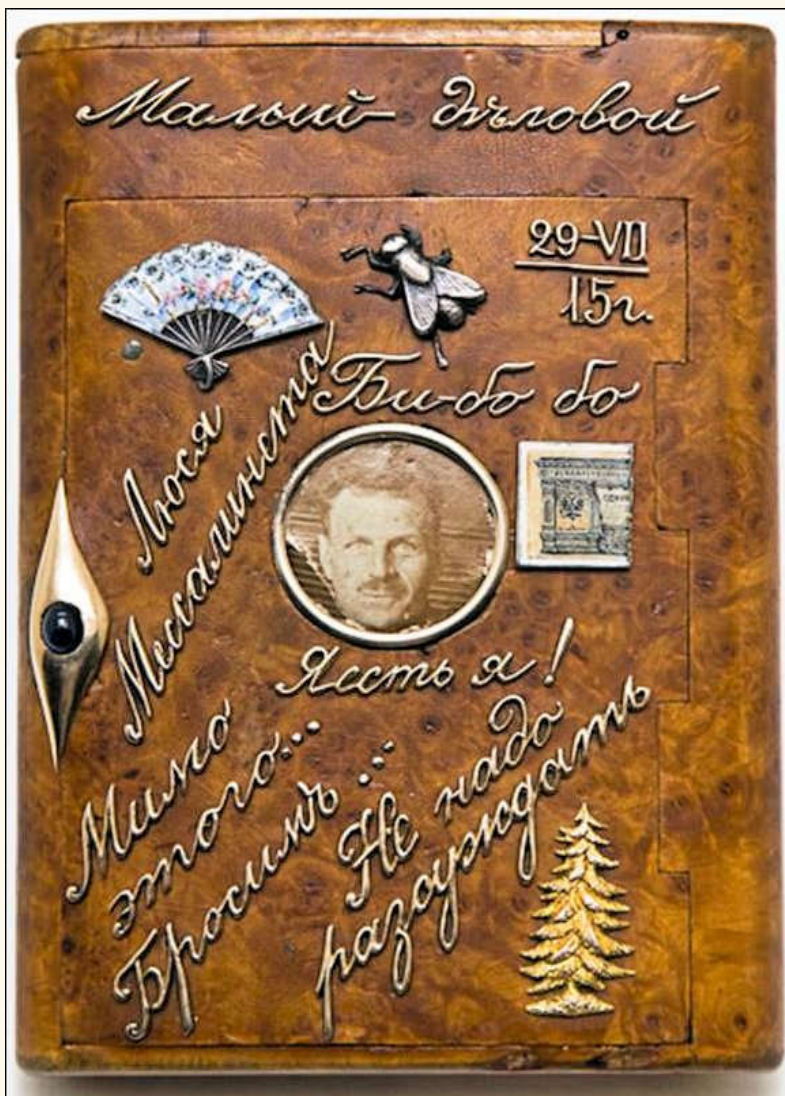 Малый дѣловой
29-VII
15г.
Би-бо бо
Люся
Мессалинста
Я есть я!
Мимо
этого...
Бросимъ...
Не надо
разсуждать